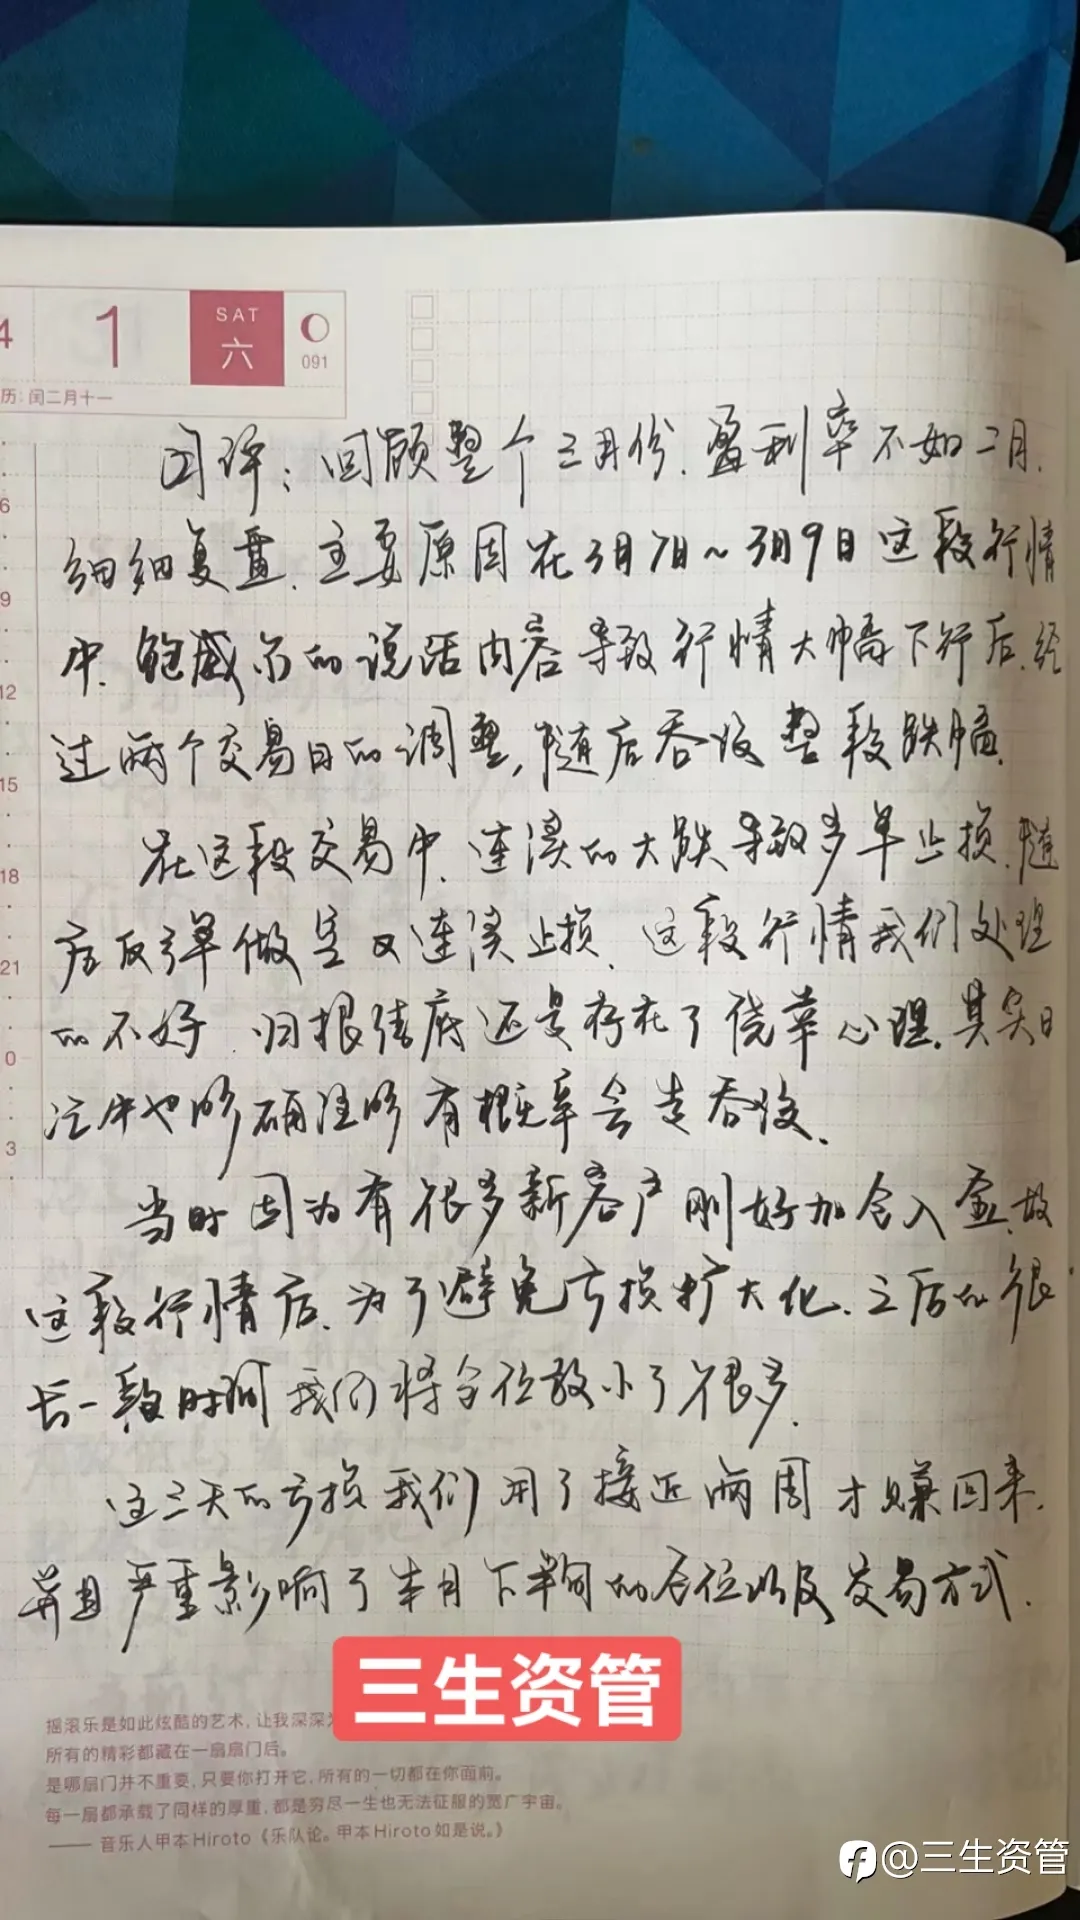 4 1 SAT 六 091
历: 闰二月十一
6
9
12
15
18
21
0
3
月评：回顾整个三月份，盈利率不如二月，
细细复盘，主要原因在3月7日~3月9日这段行情
中，鲍威尔的说话内容导致行情大幅下行后，经
过两个交易日的调整，随后吞没整段跌幅，
在这段交易中，连续的大跌导致多单止损，随
后反弹做空又连续止损，这段行情我们处理
的不好，归根结底还是存在了侥幸心理，其实日
记中也明确注明有概率会走吞没，
当时因为有很多新客户刚好加仓入金，故
这段行情后，为了避免亏损扩大化，之后的很
长一段时间我们将仓位放小了很多，
这三天的亏损我们用了接近两周才赚回来，
并且严重影响了本月下半旬的仓位以及交易方式．
三生资管
摇滚乐是如此炫酷的艺术，让我深深
所有的精彩都藏在一扇扇门后。
是哪扇门并不重要，只要你打开它，所有的一切都在你面前。
每一扇都承载了同样的厚重，都是穷尽一生也无法征服的宽广宇宙。
—— 音乐人甲本Hiroto《乐队论。甲本Hiroto如是说。》
@三生资管